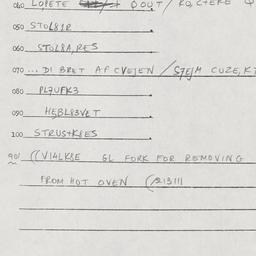 040 LOPETE OUT /
050 STOL81R
060 STOL8A,RES
070 ... DI BRET AF CVEJEN / STEJM CUZE,K
080 PL7UFK3
090 HEBL83VET
100 STRUS+K8ES
901 ((VI4LK8E GL FORK FOR REMOVING
FROM HOT OVEN (/213111